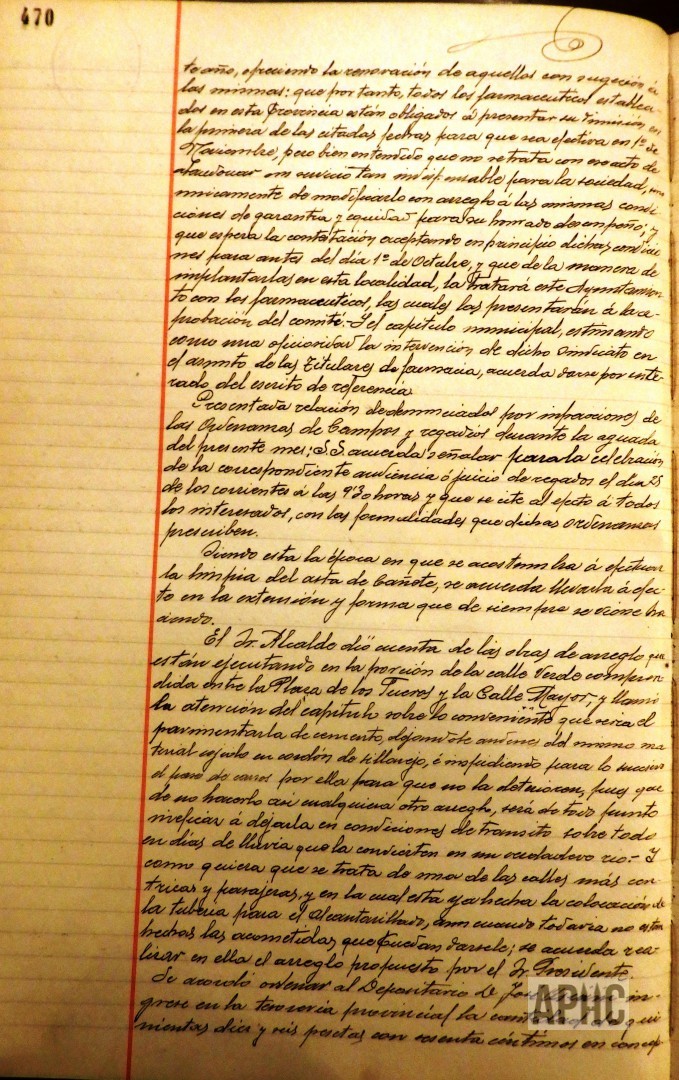 470
te año, ofreciendo la renovación de aquellos con sugeción á
las mismas: que por tanto, todos los farmaceuticos estableci-
dos en esta Provincia están obligados á presentar su dimisión, en
la primera de las citadas fechas para que sea efectiva en 1º de
Noviembre, pero bien entendido que no se trata con ese acto de
abandonar un servicio tan indispensable para la sociedad, sino
unicamente de modificarlo con arreglo á las mismas condi-
ciones de garantia y equidad para su honrado desempeño; y
que espera la contestación aceptando en principio dichas condicio-
nes para antes del dia 1º de Octubre, y que de la manera de
implantarlas en esta localidad, la tratará este Ayuntamien-
to con los farmaceuticos, las cuales las presentarán á la a-
probación del comité.- Y el capitulo municipal, estimando
como una oficiosidad la intervención de dicho Sindicato en
el asunto de las Titulares de farmacia, acuerda darse por ente-
rado del escrito de referencia.
Presentada relación de denunciados por infracciones de
las Ordenanzas de Campos y regadios durante la aguada
del presente mes; S.S. acuerda señalar para la celebración
de la correspondiente audiencia ó juicio de regados el dia 25
de los corrientes á las 9'30 horas y que se cite al efecto á todos
los interesados, con las formalidades que dichas Ordenanzas
prescriben.
Siendo esta la época en que se acostumbra á efectuar
la limpia del asta de Cañote, se acuerda llevarla á efec-
to en la extensión y forma que de siempre se viene ha-
ciendo.
El Sr. Alcalde dió cuenta de las obras de arreglo que
están ejecutando en la porción de la calle Verde compren-
dida entre la Plaza de los Fueros y la Calle Mayor, y llamó
la atención del capitulo sobre lo conveniente que seria el
pavimentarla de cemento, dejandole andenes del mismo ma-
terial cojido en cordón de sillarejo, é impidiendo para lo sucesivo
el paso de carros por ella para que no la deterioren, pues que
de no hacerlo asi cualquiera otro arreglo, será de todo punto
ineficaz á dejarla en condiciones de transito sobre todo
en dias de lluvia que la convierten en un verdadero rio.- Y
como quiera que se trata de una de las calles más cen-
tricas y pasajeras, y en la cual está ya hecha la colocación de
la tuberia para el alcantarillado, aun cuando todavia no estan
hechas las acometidas que puedan darsele; se acuerda rea-
lizar en ella el arreglo propuesto por el Sr. Presidente.
Se acordó ordenar al Depositario D. in-
grese en la tesoreria provincial la qui-
nientas diez y seis pesetas con sesenta céntimos en concep-
APHC